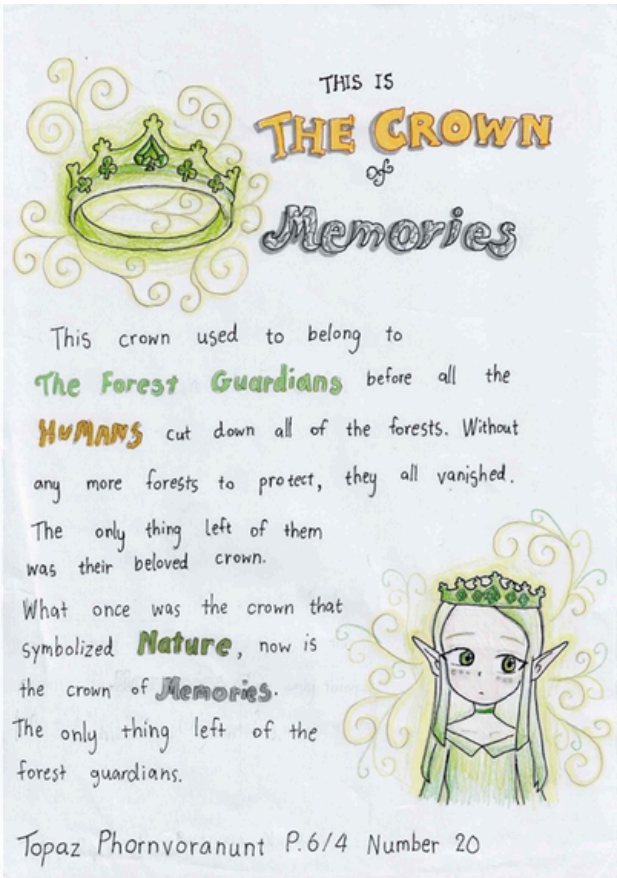 THIS IS
THE CROWN
of
Memories
This crown used to belong to
The Forest Guardians before all the
HUMANS cut down all of the forests. Without
any more forests to protect, they all vanished.
The only thing left of them
was their beloved crown.
What once was the crown that
symbolized Nature, now is
the crown of Memories.
The only thing left of the
forest guardians.
Topaz Phornvoranunt P.6/4 Number 20